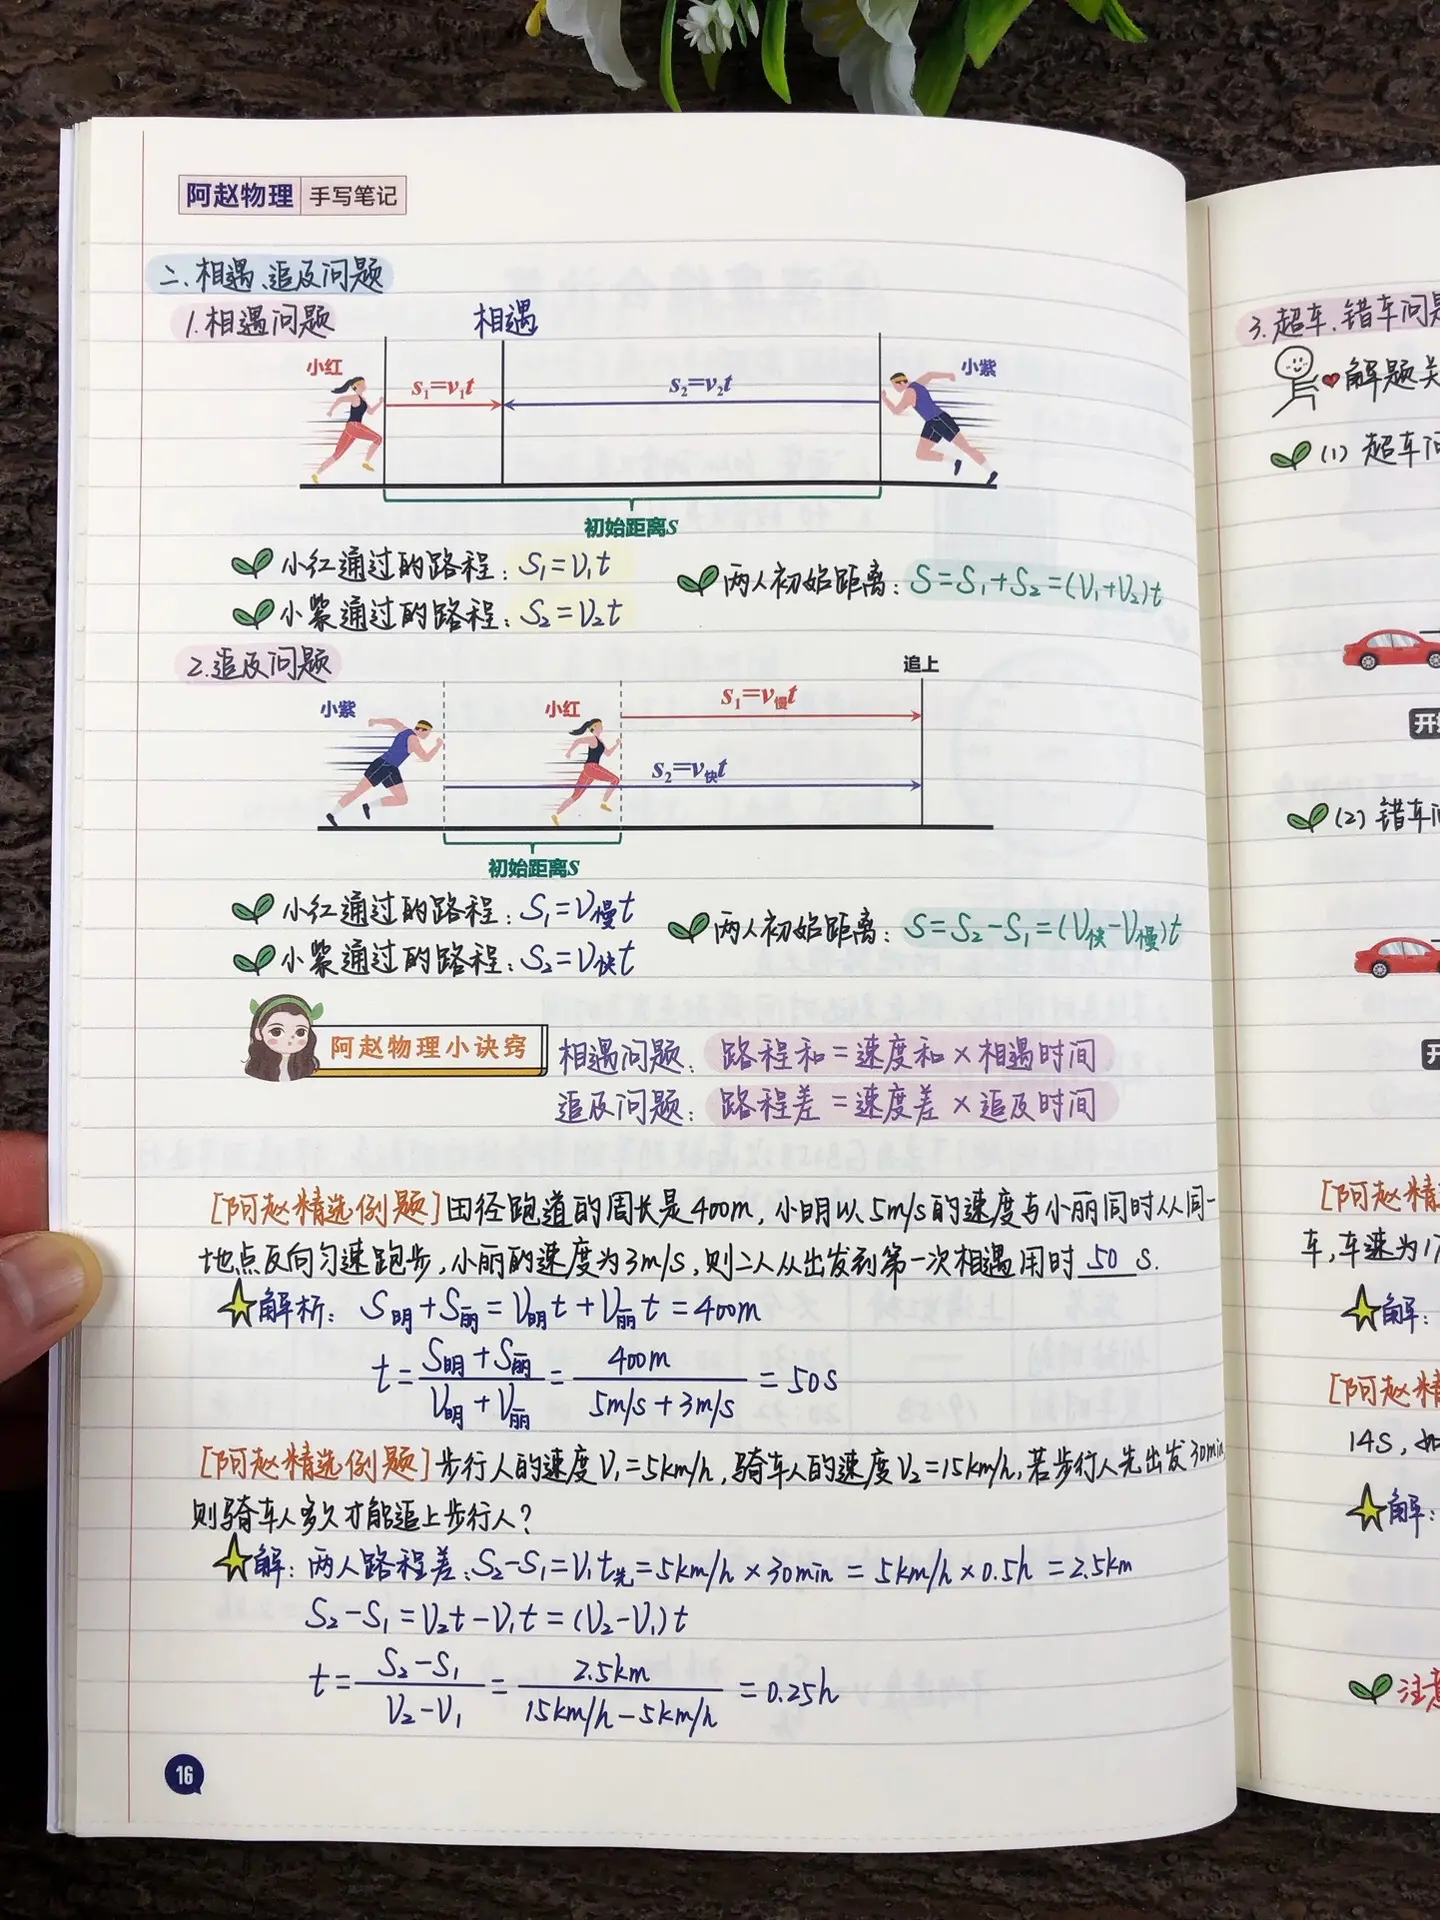 阿赵物理 手写笔记
二、相遇、追及问题
1.相遇问题
相遇
小红
s₁=v₁t
s₂=v₂t
小紫
初始距离S
小红通过的路程：S₁=V₁t
小紫通过的路程：S₂=V₂t
两人初始距离：S=S₁+S₂=(V₁+V₂)t
2.追及问题
追上
小紫
小红
s₁=v慢t
s₂=v快t
初始距离S
小红通过的路程：S₁=V慢t
小紫通过的路程：S₂=V快t
两人初始距离：S=S₂-S₁=(V快-V慢)t
阿赵物理小诀窍
相遇问题：路程和=速度和×相遇时间
追及问题：路程差=速度差×追及时间
[阿赵精选例题]田径跑道的周长是400m，小明以5m/s的速度与小丽同时从同一
地点反向匀速跑步，小丽的速度为3m/s，则二人从出发到第一次相遇用时 50 s.
解析：S明+S丽=V明t+V丽t=400m
t=(S明+S丽)/(V明+V丽)=400m/(5m/s+3m/s)=50s
[阿赵精选例题]步行人的速度V₁=5km/h，骑车人的速度V₂=15km/h，若步行人先出发30min，
则骑车人多久才能追上步行人？
解：两人路程差：S₂-S₁=V₁t先=5km/h×30min=5km/h×0.5h=2.5km
S₂-S₁=V₂t-V₁t=(V₂-V₁)t
t=(S₂-S₁)/(V₂-V₁)=2.5km/(15km/h-5km/h)=0.25h
16
3.超车、错车问题
解题关
(1)超车问
开始
(2)错车问
开
[阿赵精
车，车速为17
解：
[阿赵精
14s，如
解：
注意